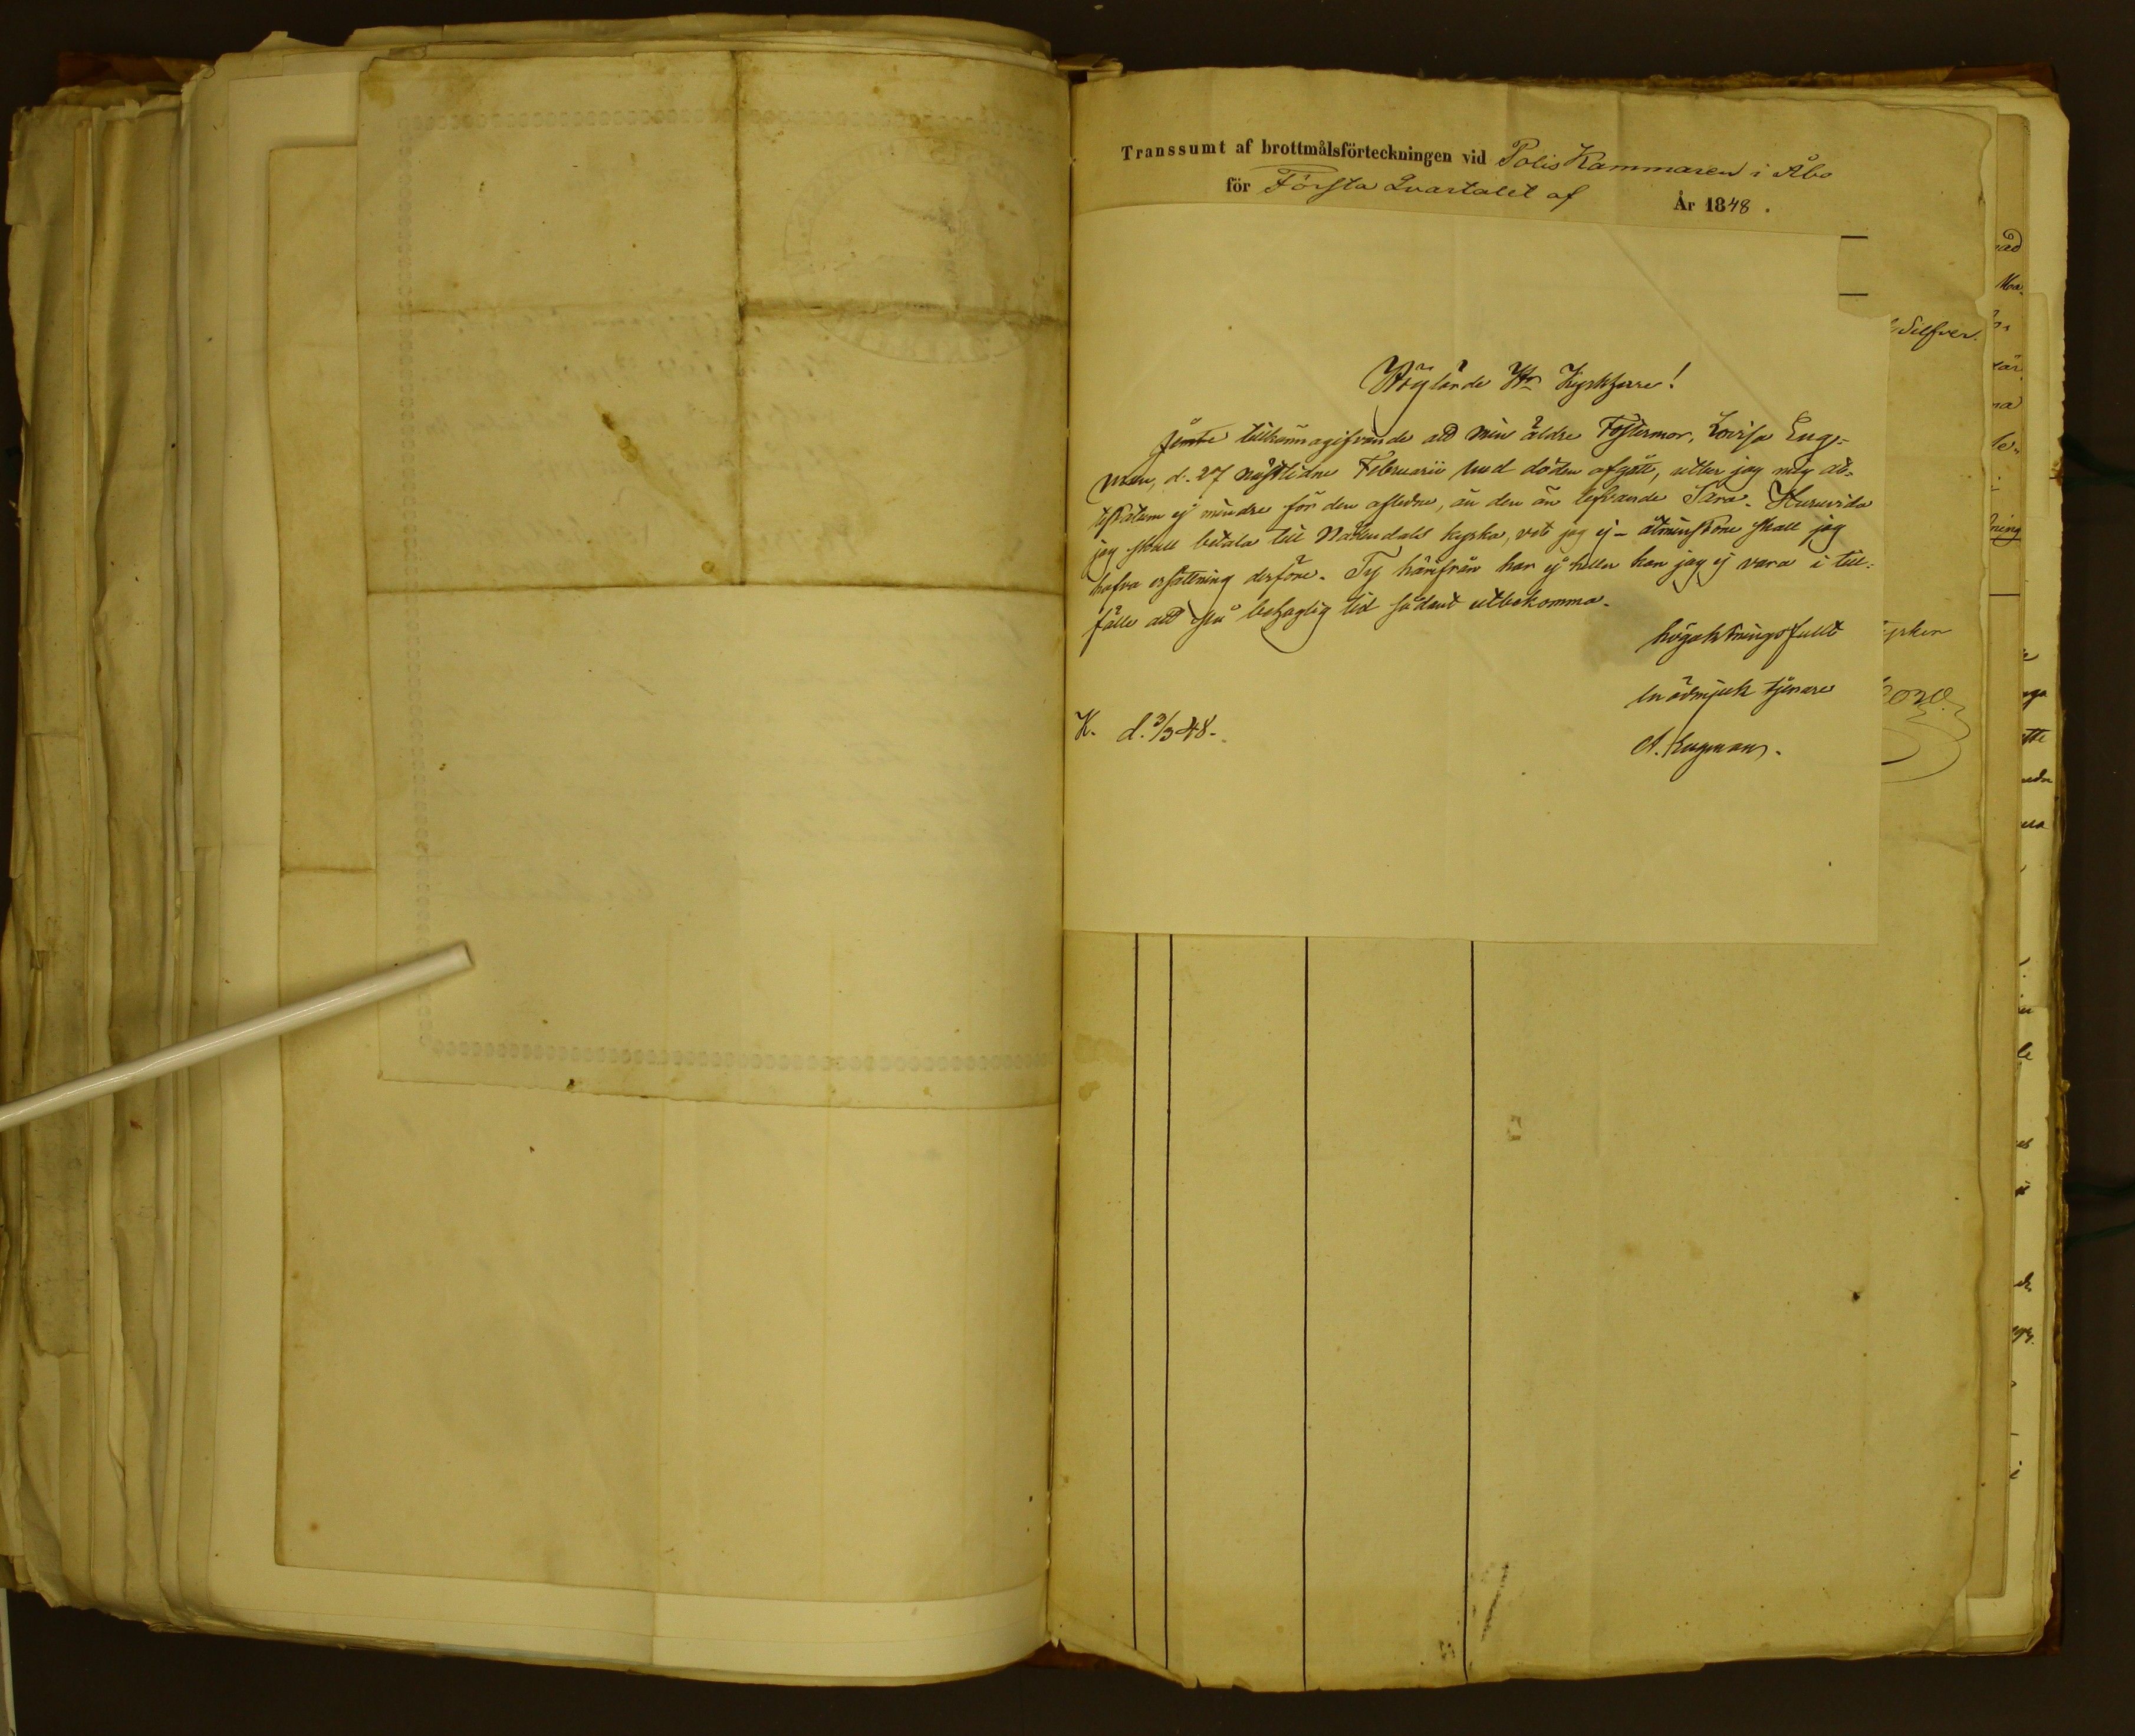 Transsumt af brottmålsförteckningen vid Polis Kammaren i Åbo
för Första Quartalet af År 1848.
Silfver.
Höglärde Hr Kyrkherre!
Jemte tillkännagifvande att min äldre Fostermor, Lovisa Eng-
man, d. 27 nästlidne Februarii med döden afgått, utber jag mig at-
testatum ej mindre för den aflidne, än den än lefvande Sara. Huruvida
jag skall betala till Nådendals kyrka, vet jag ej – åtminstone skall jag
hafva ersättning derföre. Ty härifrån har ej heller kan jag ej vara i till-
fälle att på behaglig tid sådant utbekomma.
högaktningsfullt
en ödmjuk tjenare
K. d. 3/3 48.
A. Engman.